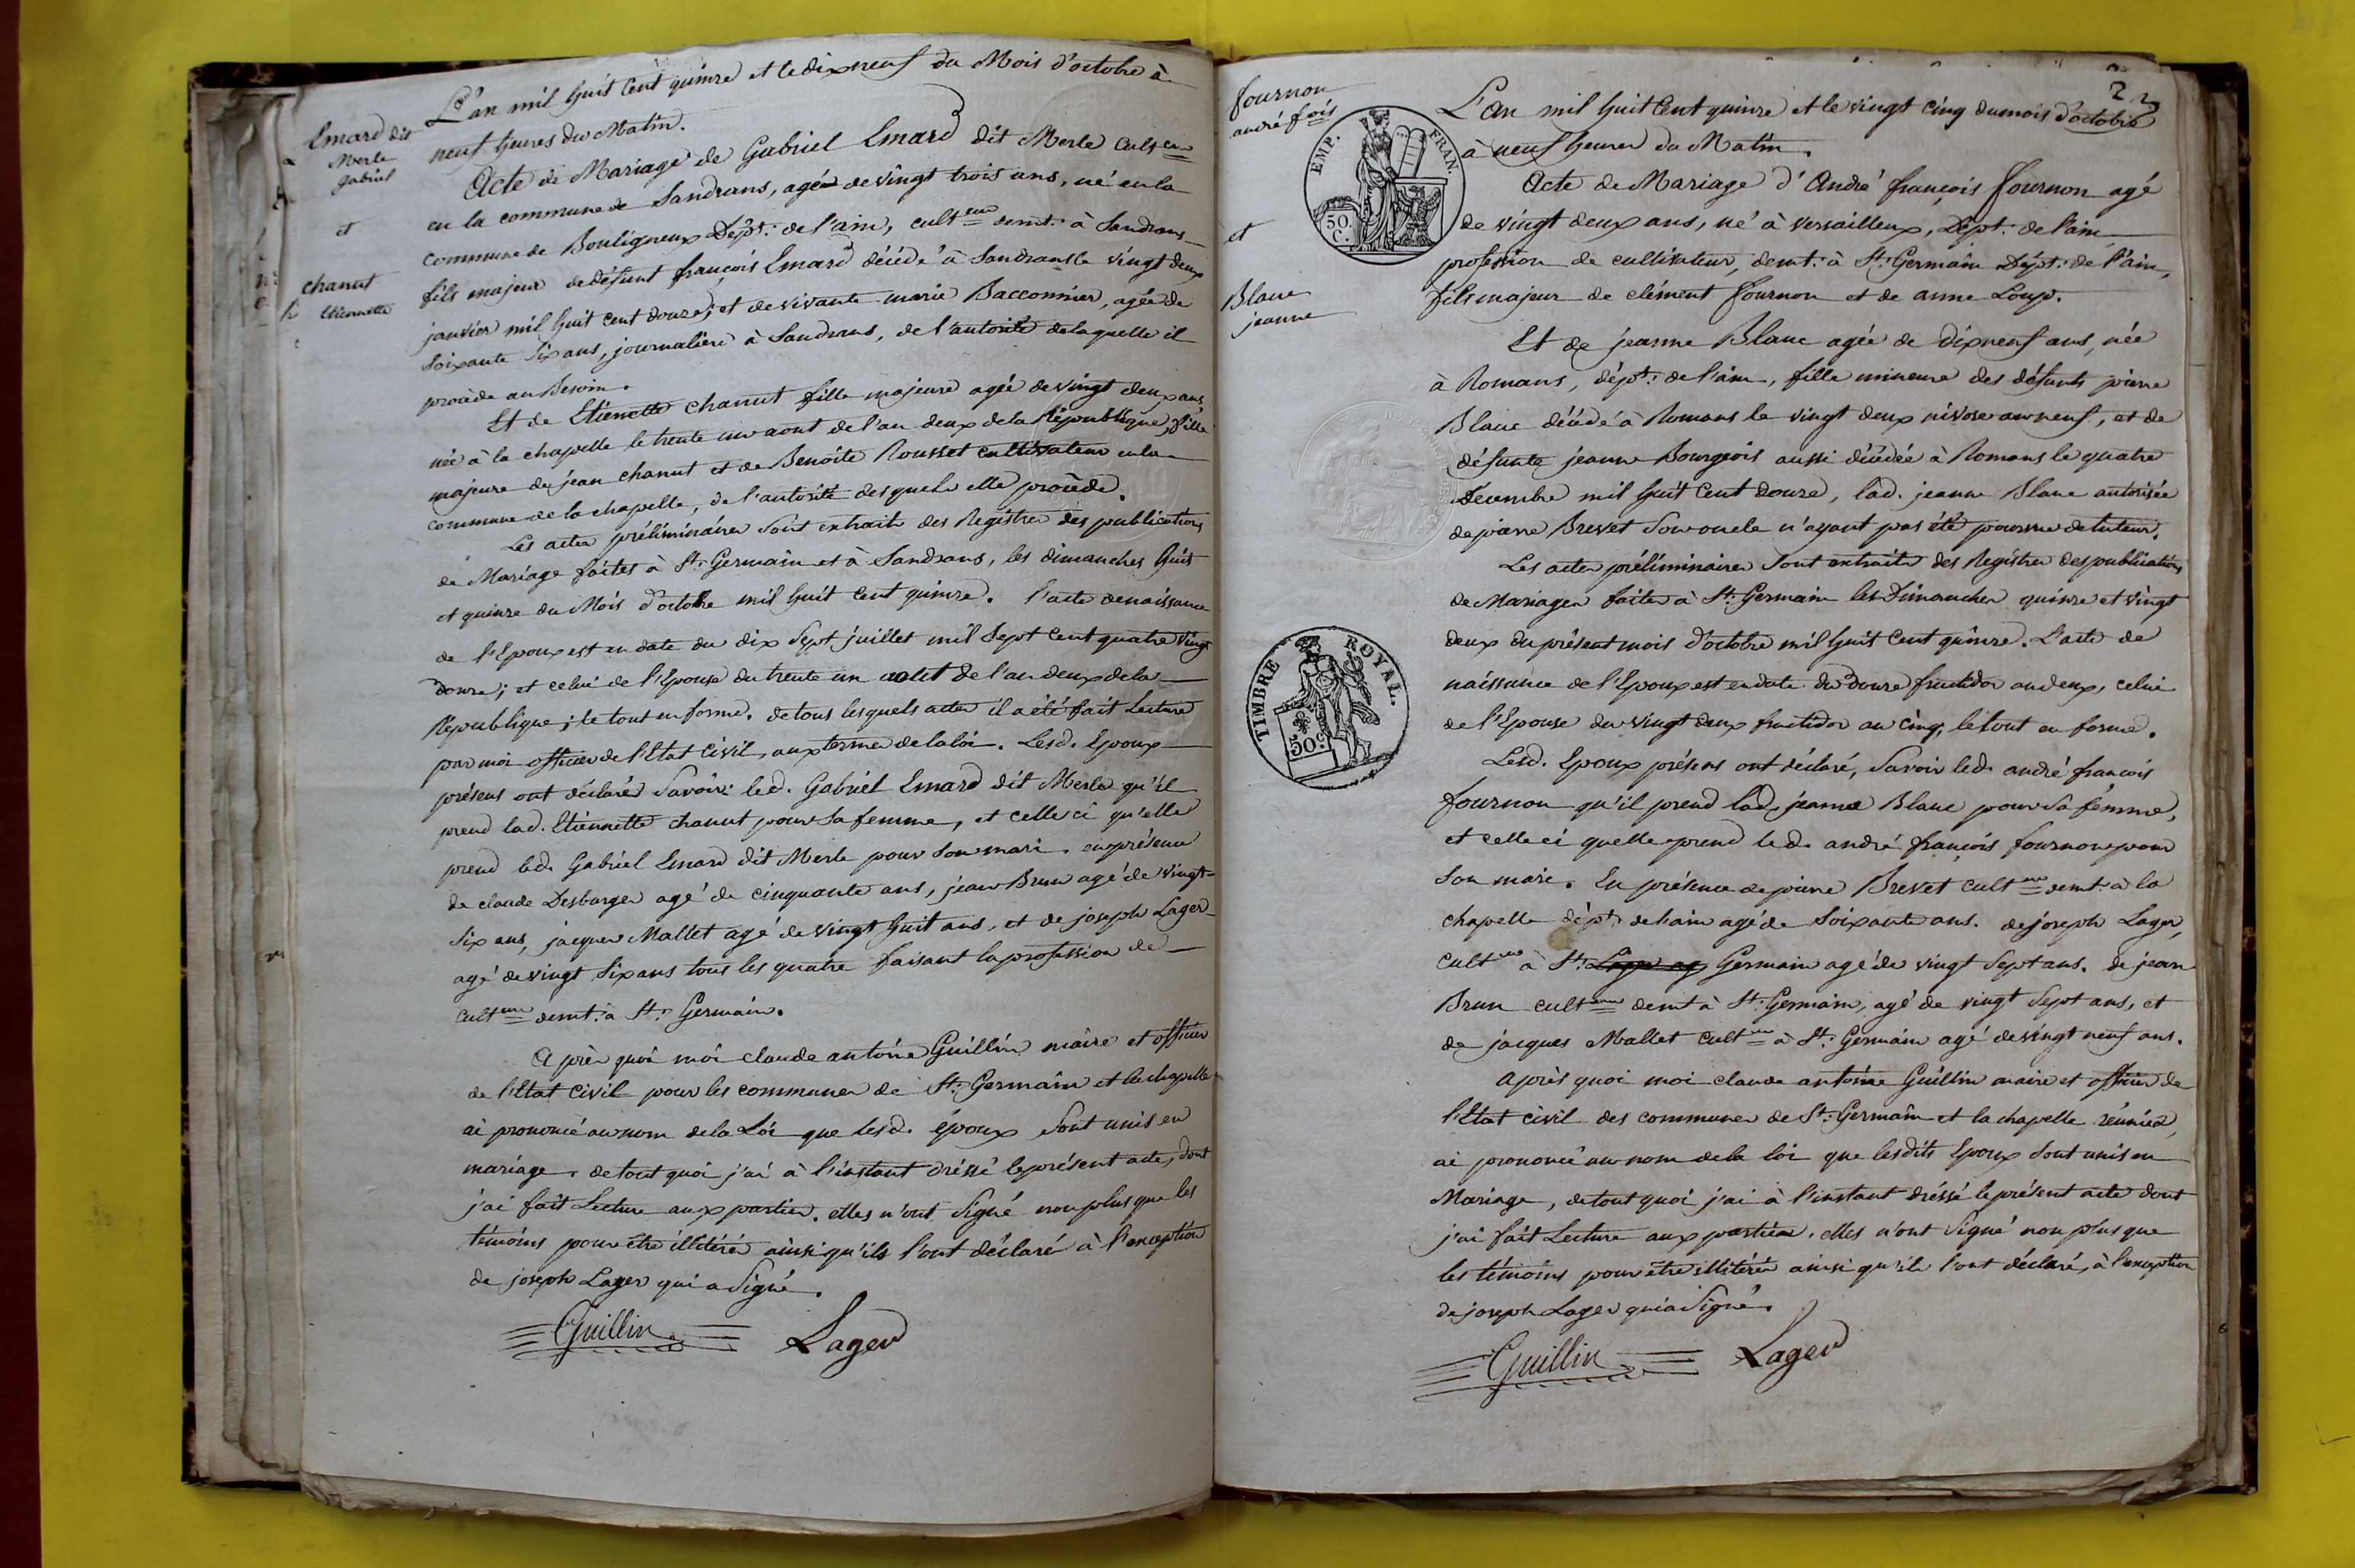 L'an mil huit cent quinze et le dixneuf du Mois d'octobre à
neuf heures du Matin.
Emard dit
Merle
Gabriel
et
chanut
Etiennette
Acte de Mariage de Gabriel Emard dit Merle cult.eur
en la commune de Sandrans, agé de vingt trois ans, né en la
commune de Bouligneux Dépt. de l'ain, cult.eur demt. à Sandrans
fils majeur de défunt françois Emard décédé à Sandrans le vingt deux
janvier mil huit cent douze; et de vivante marie Bacconnier, agée de
Soixante Six ans, journalière à Sandrans, de l'autorité de laquelle il
procède au Besoin.
Et de Etiennette chanut fille majeure agée de vingt deux ans,
née à la chapelle le trente un aout de l'an deux de la République, fille
majeure de jean chanut et de Benoite Rousset cultivateur en la
commune de la chapelle, de l'autorité desquels elle procède.
Les actes préliminaires sont extraits des Registres des publications
de Mariage faites à St. Germain et à Sandrans, les dimanches huit
et quinze du Mois d'octobre mil huit cent quinze. l'acte de naissance
de l'Epoux est en date du dix Sept juillet mil Sept cent quatre vingt
douze; et celui de l'Epouse du trente un aout de l'an deux de la
République; le tout en forme. de tous lesquels actes il a été fait Lecture
par moi officier de l'Etat civil, aux termes de la loi. Lesd. Epoux
présens ont déclaré Savoir: led. Gabriel Emard dit Merle qu'il
prend lad. Etiennette chanut pour Sa femme, et celle ci qu'elle
prend led. Gabriel Emard dit Merle pour Son mari. en présence
de claude Desbarges agé de cinquante ans, jean Brun agé de vingt-
Six ans, jacques Mallet agé de vingt huit ans, et de joseph Lager
agé de vingt Six ans tous les quatre faisant la profession de
cult.eur demt. à St. Germain.
Après quoi moi claude antoine Guillin maire et officier
de l'Etat civil pour les communes de St. Germain et la chapelle
ai prononcé au nom de la Loi que lesd. époux Sont unis en
mariage. de tout quoi j'ai à l'instant dréssé le présent acte, dont
j'ai fait Lecture aux parties. elles n'ont Signé non plus que les
témoins pour être illitérés ainsi qu'ils l'ont déclaré à l'exception
de joseph Lager qui a Signé.
Guillin Lager
22
fournon
andré fois
et
Blanc
jeanne
EMP. FRAN.
50.
C.
TIMBRE ROYAL.
50c
L'an mil huit cent quinze et le vingt cinq du mois d'octobre
à neuf heures du Matin.
Acte de Mariage d'André françois fournon agé
de vingt deux ans, né à versailleux, Dépt. de l'ain
profession de cultivateur, demt. à St. Germain Dépt. de l'ain,
fils majeur de clément fournon et de anne Loup.
Et de jeanne Blanc agée de dixneuf ans, née
à Romans, dépt. de l'ain, fille mineure des défunts pierre
Blanc décédé à Romans le vingt deux nivose an neuf, et de
défunte jeanne Bourgeois aussi décédée à Romans le quatre
Décembre mil huit cent douze, lad. jeanne Blanc autorisée
de pierre Brevet Son oncle n'ayant pas été pourvue de tuteur.
Les actes préliminaires Sont extraits des Registres des publications
de Mariages faites à St. Germain les Dimanches quinze et vingt
deux du présent mois d'octobre mil huit cent quinze. L'acte de
naissance de l'Epoux est en date du douze fructidor an deux, celui
de l'Epouse du vingt deux fructidor an cinq, le tout en forme.
Lesd. Epoux présens ont déclaré, Savoir led. andré françois
fournon qu'il prend lad. jeanne Blanc pour Sa femme,
et celle ci quelle prend led. andré françois fournon pour
Son mari. En présence de pierre Brevet cult.eur demt. à la
chapelle dépt. de l'ain agé de Soixante ans. de joseph Lager,
cult.eur à St. Lager ag Germain agé de vingt Sept ans. de jean
Brun cult.eur demt à St. Germain, agé de vingt Sept ans, et
de jacques Mallet cult.eur à St. Germain agé de vingt neuf ans.
Après quoi moi claude antoine Guillin maire et officier de
l'Etat civil des communes de St. Germain et la chapelle réunies,
ai prononcé au nom de la loi que lesdits Epoux Sont unis en
Mariage, de tout quoi j'ai à l'instant dréssé le présent acte dont
j'ai fait Lecture aux parties. elles n'ont Signé non plus que
les témoins pour être illitérés ainsi qu'ils l'ont déclaré, à l'exception
de joseph Lager qui a Signé.
Guillin Lager